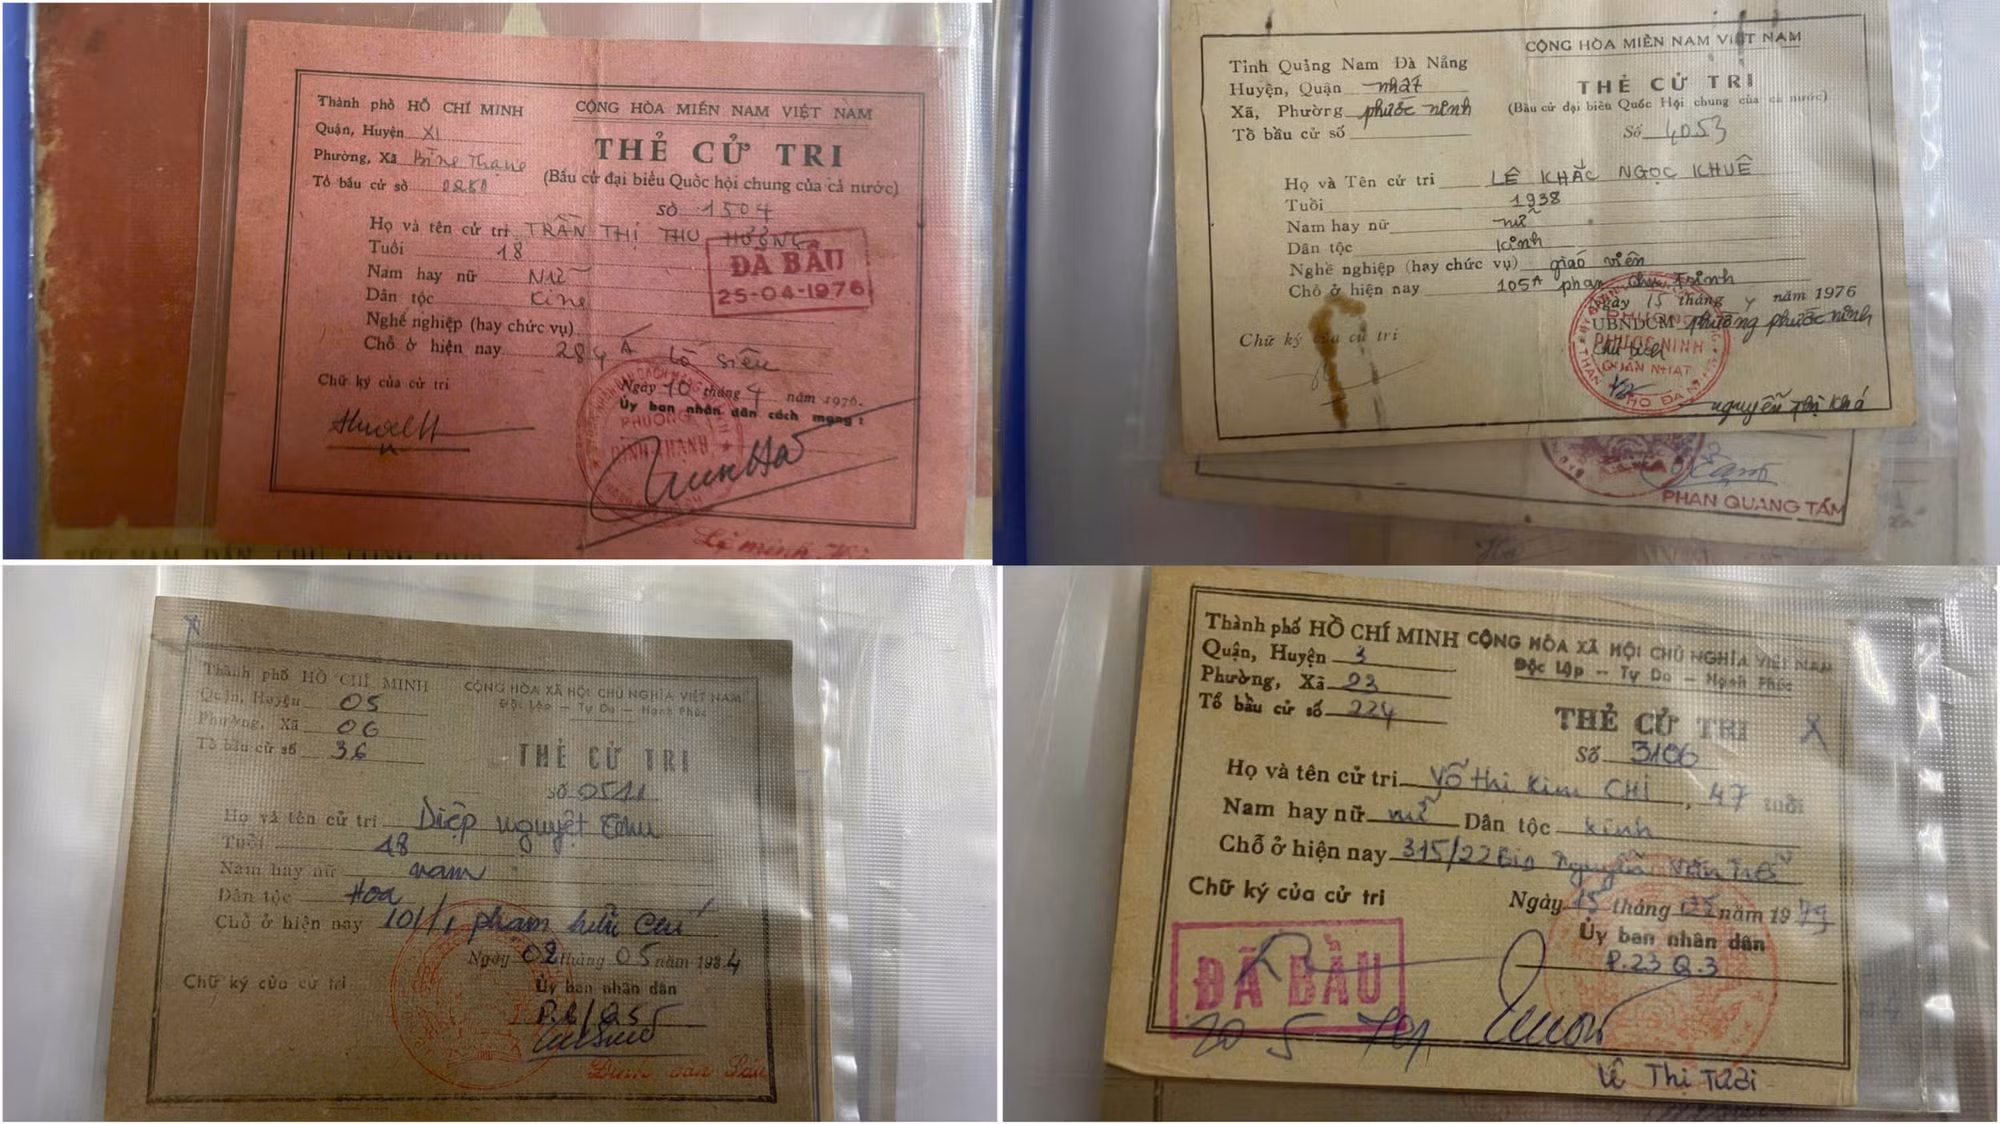 Thành phố HỒ CHÍ MINH
Quận, Huyện XI
Phường, Xã Bình Thạnh
Tổ bầu cử số
CỘNG HÒA MIỀN NAM VIỆT NAM
THẺ CỬ TRI
(Bầu cử đại biểu Quốc hội chung của cả nước)
số 1504
Họ và tên cử tri TRẦN THỊ THU HƯƠNG
Tuổi 18
Nam hay nữ NỮ
Dân tộc Kinh
Nghề nghiệp (hay chức vụ)
Chỗ ở hiện nay 284 A Lò Siêu
ĐÃ BẦU
25-04-1976
Chữ ký của cử tri
Ngày 10 tháng 4 năm 1976.
Ủy ban nhân dân cách mạng :
PHƯỜNG
BÌNH THẠNH
Tỉnh Quảng Nam Đà Nẵng
Huyện, Quận nhất
Xã, Phường phước ninh
Tổ bầu cử số
CỘNG HÒA MIỀN NAM VIỆT NAM
THẺ CỬ TRI
(Bầu cử đại biểu Quốc Hội chung của cả nước)
Số 4053
Họ và Tên cử tri LÊ KHẮC NGỌC KHUÊ
Tuổi 1938
Nam hay nữ nữ
Dân tộc kinh
Nghề nghiệp (hay chức vụ) giáo viên
Chỗ ở hiện nay 105A phan Chu Trinh
Ngày 15 tháng 4 năm 1976
UBNDCM phường phước ninh
Chữ ký của cử tri
PHƯỚC NINH
QUẬN NHẤT
nguyễn thị Khá
PHAN QUANG TÁM
Thành phố HỒ CHÍ MINH
Quận, Huyện 05
Phường, Xã 06
Tổ bầu cử số 36
CỘNG HÒA XÃ HỘI CHỦ NGHĨA VIỆT NAM
Độc Lập — Tự Do — Hạnh Phúc
THẺ CỬ TRI
số 0511
Họ và tên cử tri Diệp nguyệt Thu
Tuổi 48
Nam hay nữ nam
Dân tộc Hoa
Chỗ ở hiện nay 101/1 phạm hữu Chí
Ngày 02 tháng 05 năm 1984
Chữ ký của cử tri
Ủy ban nhân dân
P.6/Q5
Thành phố HỒ CHÍ MINH
Quận, Huyện 3
Phường, Xã 23
Tổ bầu cử số 224
CỘNG HÒA XÃ HỘI CHỦ NGHĨA VIỆT NAM
Độc Lập — Tự Do — Hạnh Phúc
THẺ CỬ TRI
Số 3106
Họ và tên cử tri Võ thị Kim CHI, 47 tuổi
Nam hay nữ nữ Dân tộc kinh
Chỗ ở hiện nay 315/22Bis Nguyễn Văn Trỗi
Chữ ký của cử tri
Ngày 15 tháng 05 năm 1979
Ủy ban nhân dân
P.23 Q.3
ĐÃ BẦU
20 5 79